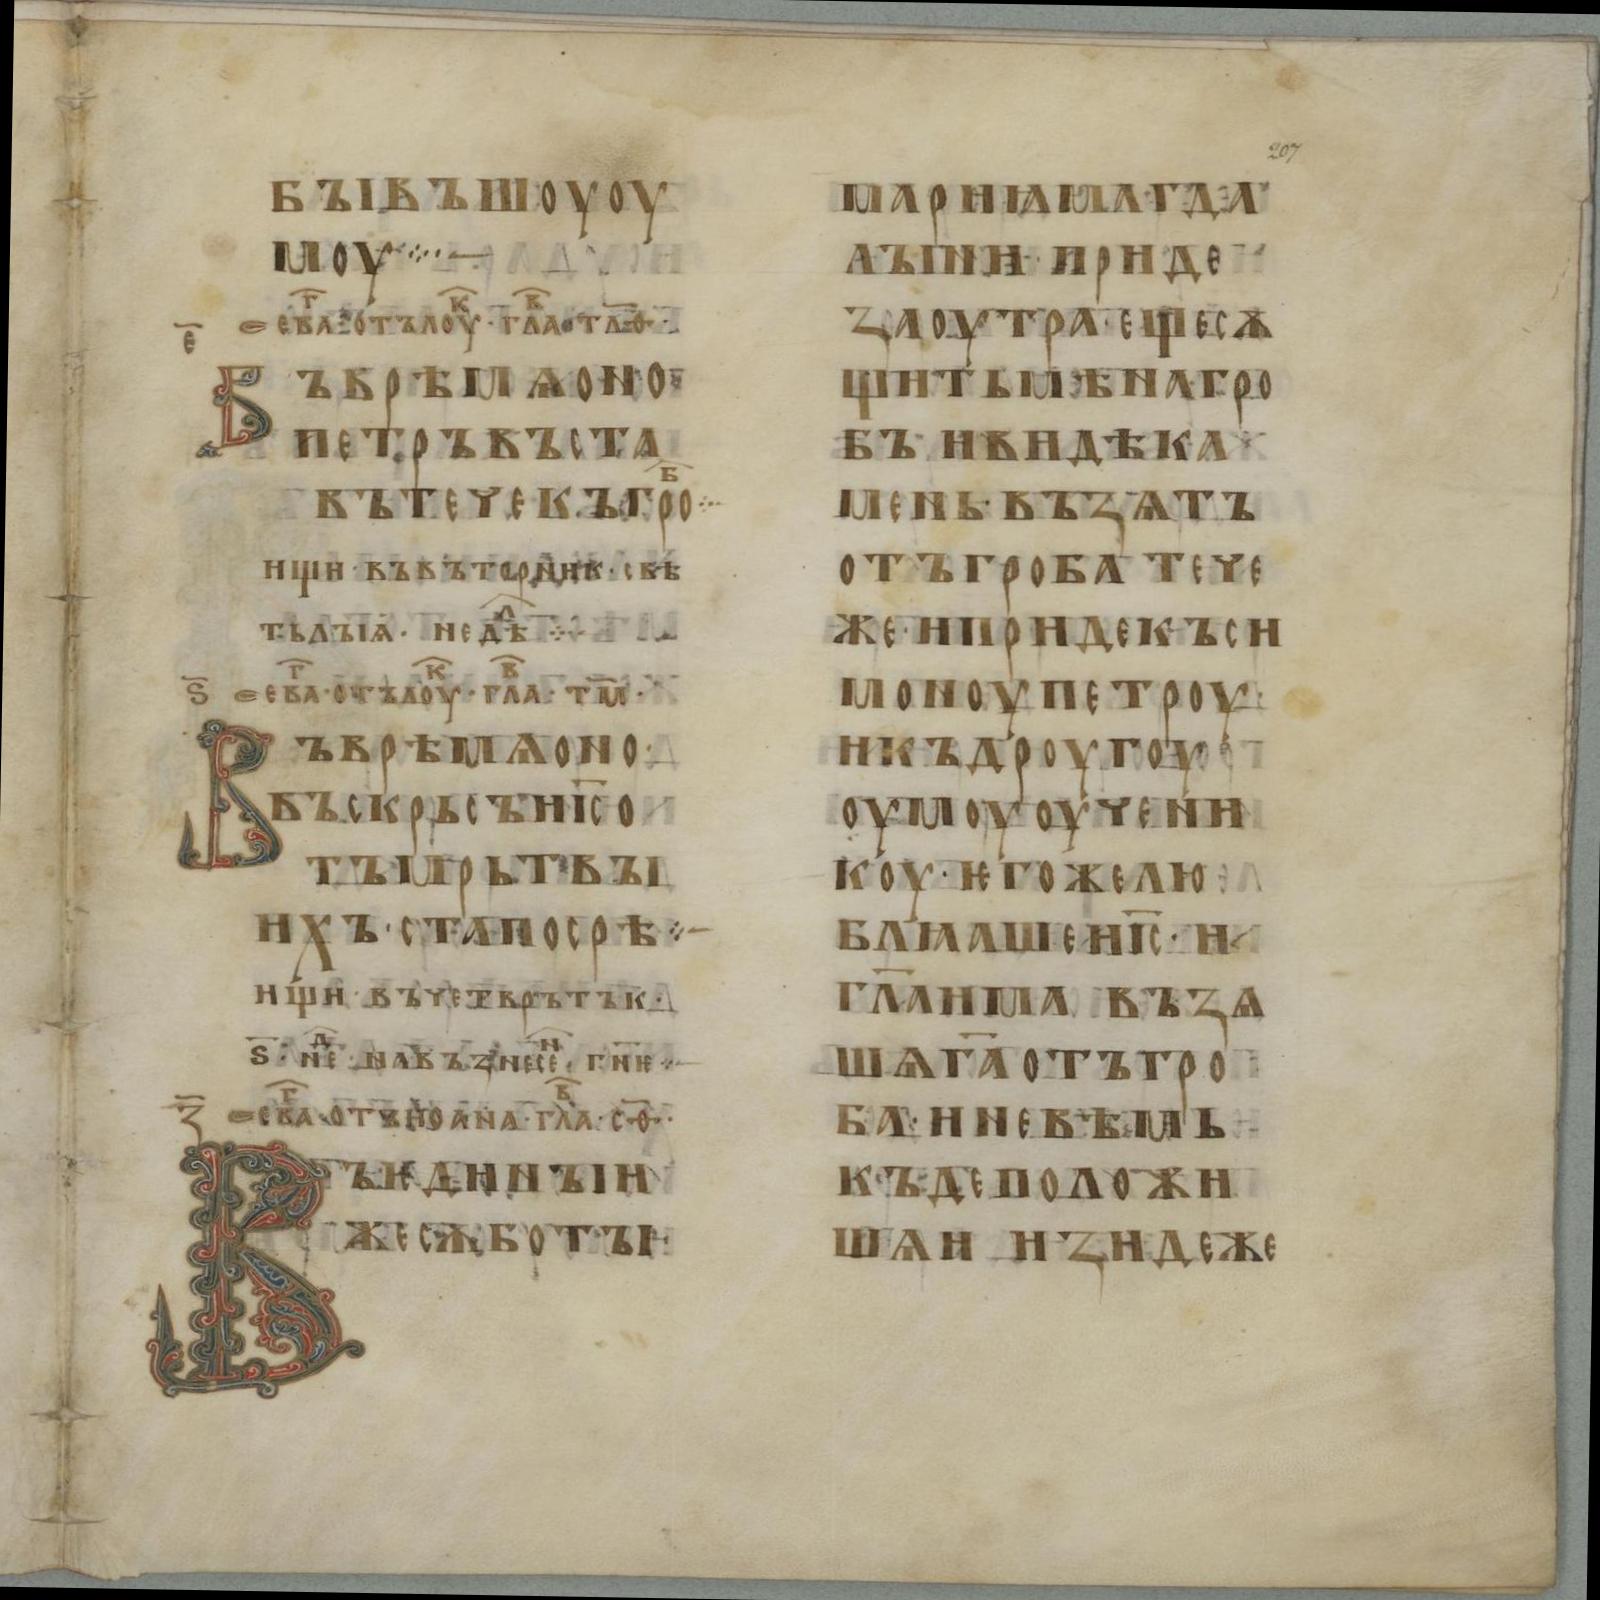 207
БЪІВЪШОУОУ
МОУ
є҃
ЕВАⷢ҇ ОТЪЛОУⷦ҇ · ГЛАⷡ҇ · Т҃Л҃Ѳ ·
ВЪВРѢМѦОНО
ПЕТРЪВЪСТА
ВЪТЕЧЕКЪГРОⷠ
ИЩИ · ВЪВЪТОРНИК · СВѢ
ТЬЛЪІѦ · НЕДѢⷧ
Ѕ҃ ЕВАⷢ҇ · ОТЪЛОУⷦ҇ · ГЛАⷡ҇ · Т҃М ·
ВЪВРѢМѦОНО ·
ВЪСКРЬСЪНІ҃СО
ТЪМРЬТВЪІ
ИХЪ · СТАПОСРѢ
ИЩИ · ВЪЧЕТВРЬТЪК ·
Ѕ҃ · НЕⷣ · НАВЪЗНЕСЕⷩ · ГНѤ
З҃ ЕВАⷢ҇ · ОТЪИОАНА · ГЛАⷡ҇ · С҃Ѳ ·
ВЪѤДИНЪІИ
ЖЕСѪБОТЪІ
МАРИꙖМАГДА
ЛЪІНИ · ПРИДЕ
ЗАОУТРА · ЕЩЕСѪ
ЩИТЬМѢНАГРО
БЪ ИВИДѢКА
МЕНЬ · ВЪЗѦТЪ
ОТЪГРОБА ТЕЧЕ
ЖЕ · ИПРИДЕКЪСИ
МОНОУПЕТРОУ ·
ИКЪДРОУГОУ
ОУМОУОУЧЕНИ
КОУ · ѤГОЖЕЛЮ
БЛꙖАШЕИ҃С · И
ГЛ҃АИМА ВЪЗѦ
ШѦГ҃АОТЪГРО
БА · ИНЕВѢМЬ
КЪДЕПОЛОЖИ
ШѦИ ИЗИДЕЖЕ